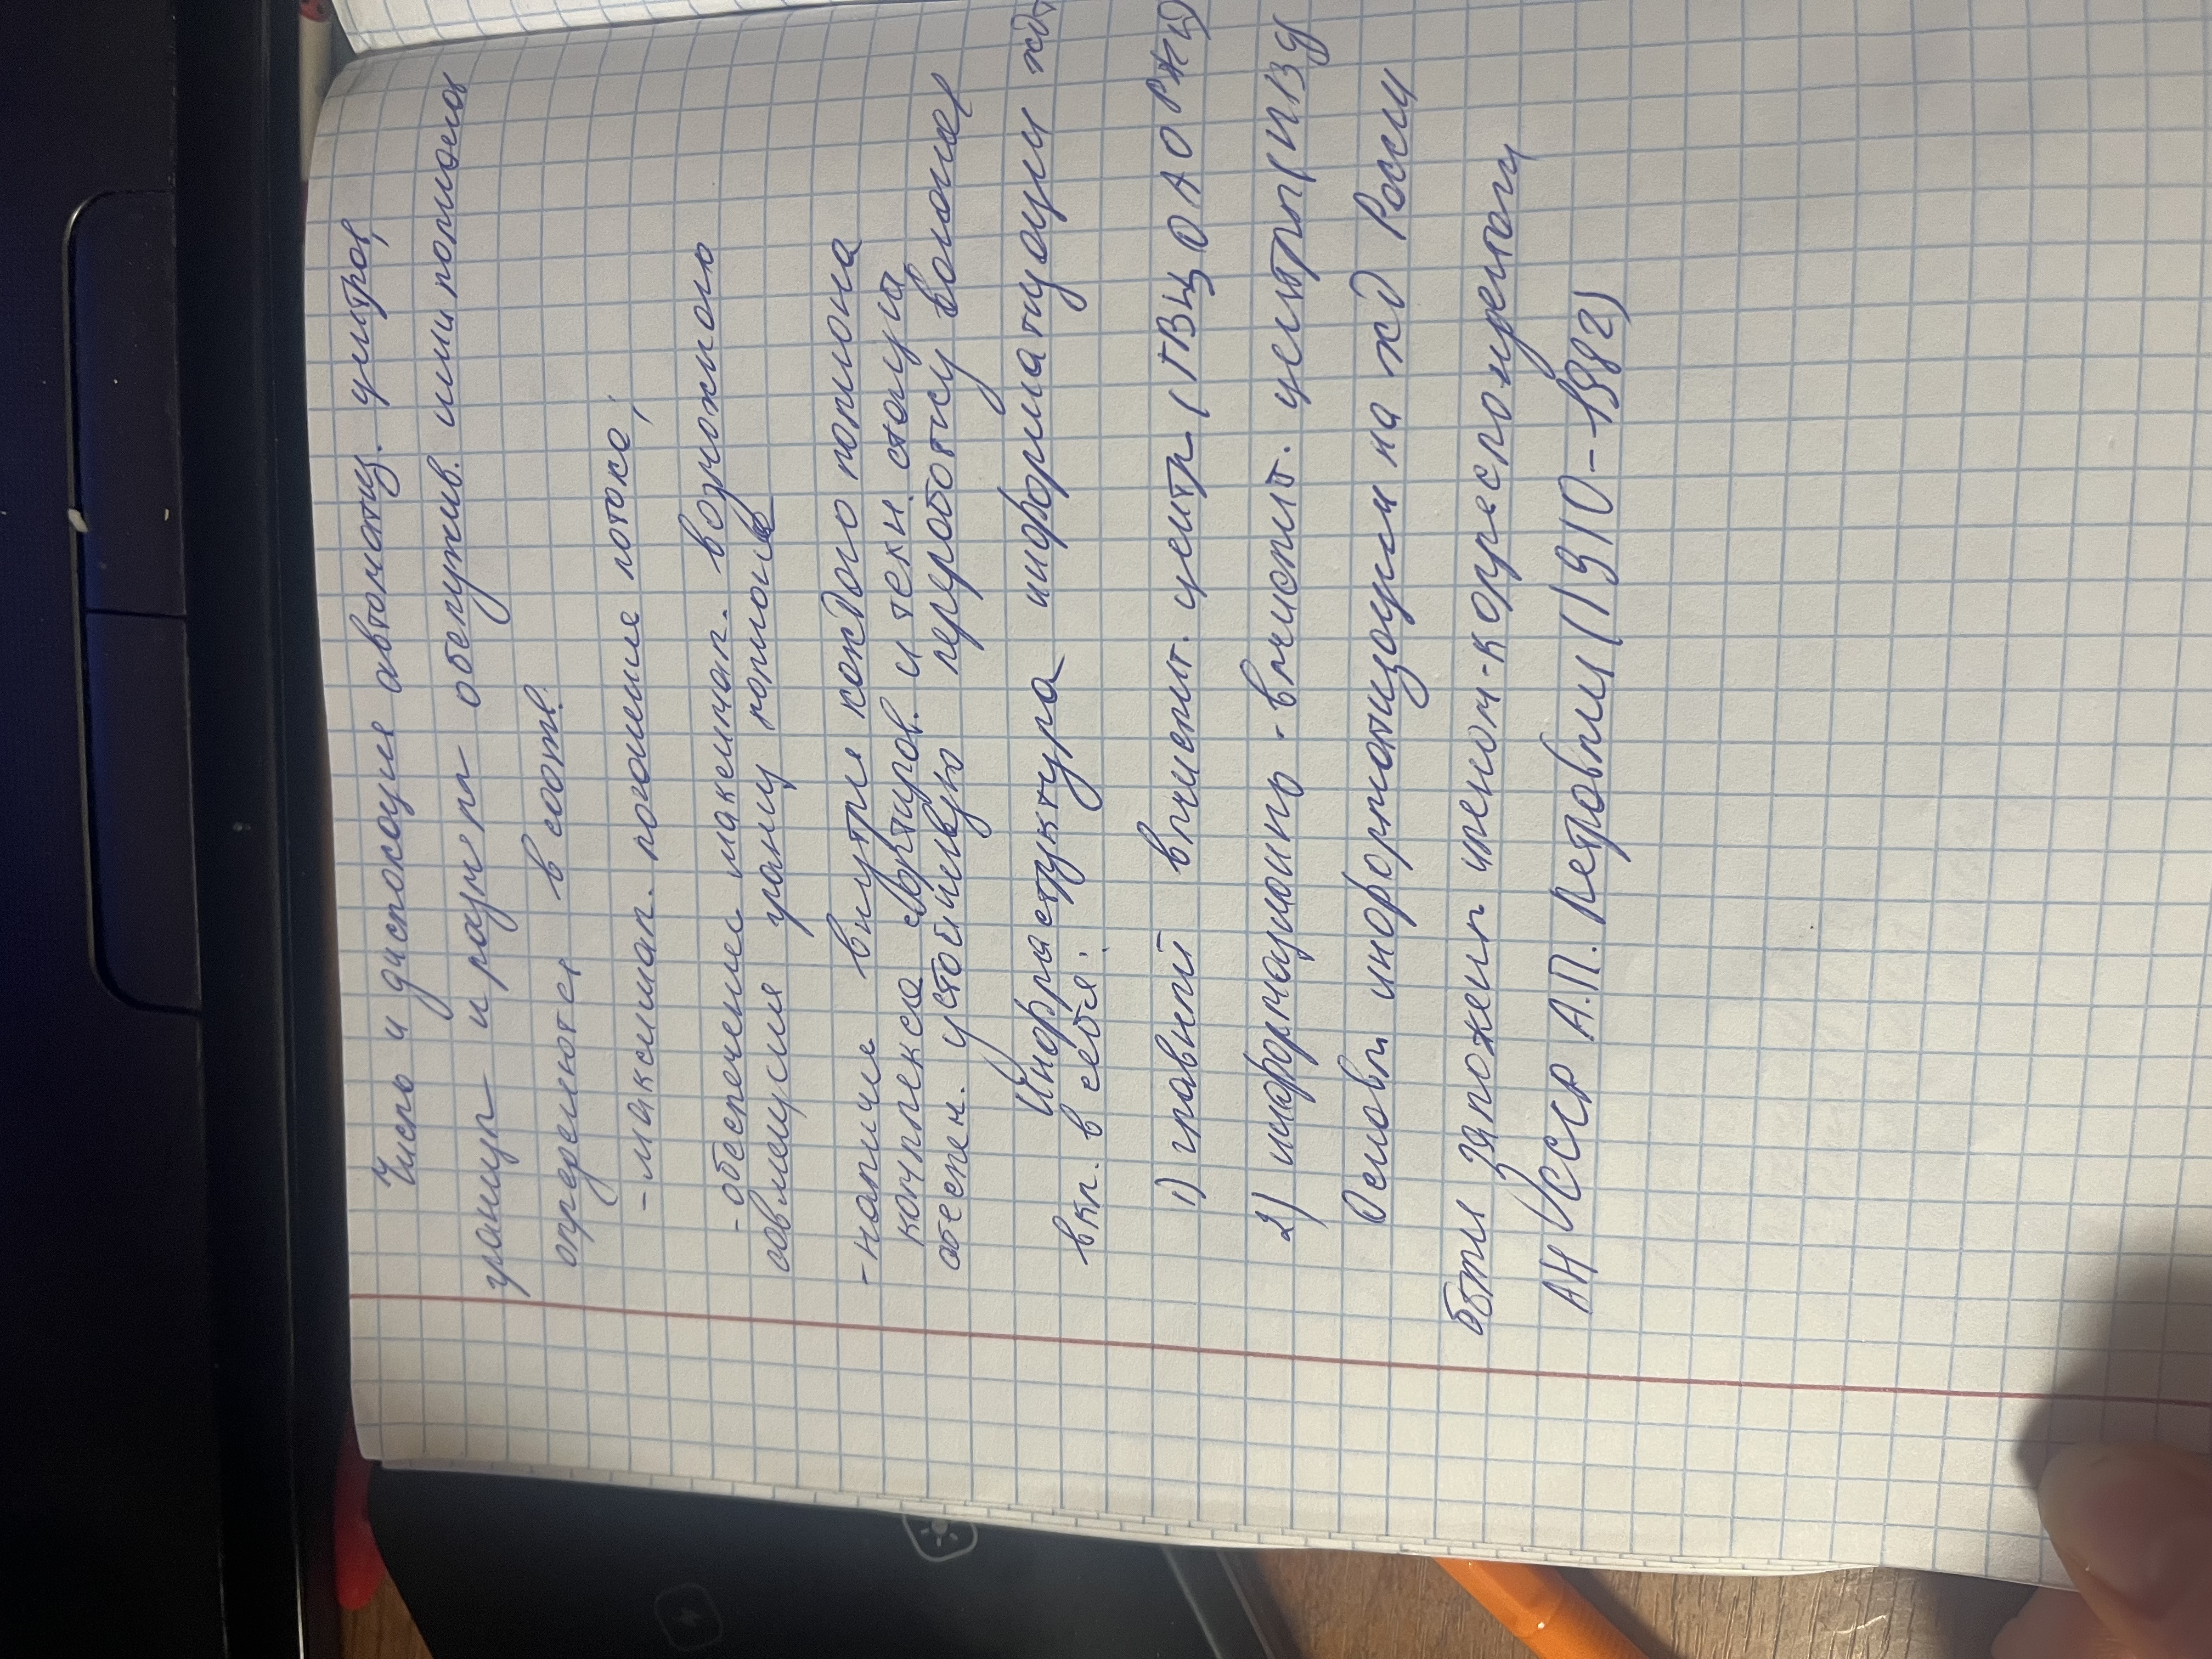 Число и дислокация автоматиз. центров,
границы и размеры обслужив. ими полигонов
определяются в соотв.
-максимал. погашение потоков;
-обеспечение максимал. возможного
совмещения границ полигонов
-наличие внутри каждого полигона
комплекса сортиров. и техн. станций
обеспеч. устойчивую переработку вагонов
Инфраструктура информатизации ждт
вкл. в себя:
1) главный вычислит. центр (ГВЦ ОАО РЖД)
2) информационно-вычислит. центры (ИВЦ)
Основы информатизации на жд России
были заложены членом-корреспондентом
АН СССР А.П. Петровым (1910-1982)